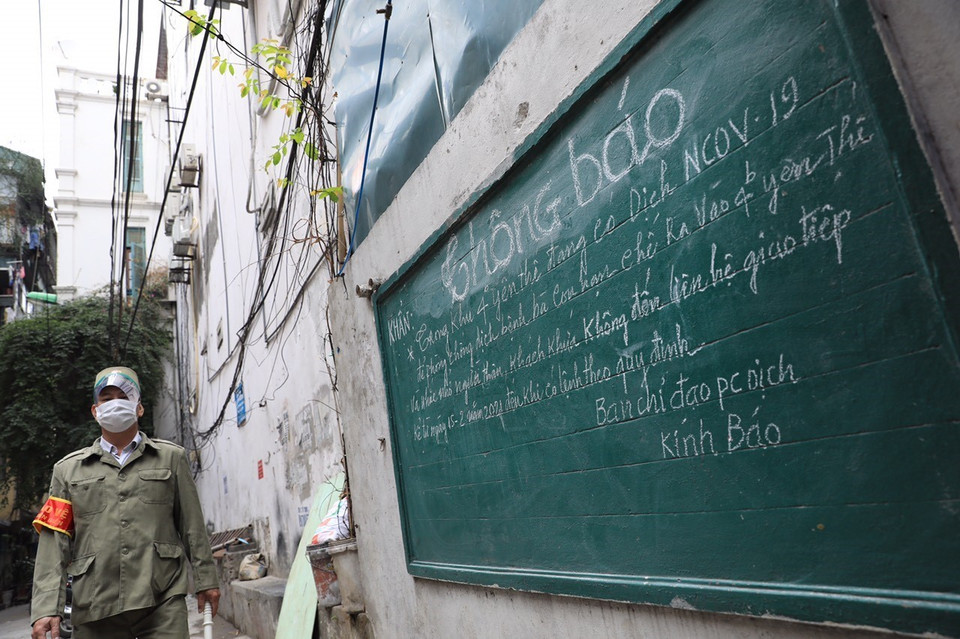 Thông báo
KHẨN:
* Trong khu 4 yên thế đang có Dịch NCOV-19
để phòng chống dịch bệnh bà con hạn chế Ra Vào 4b yên Thế
Và nhắc nhở người thân, khách khứa không đến liên hệ giao tiếp
kể từ ngày 15-2 năm 2021 đến khi có lệnh theo quy định
Ban chỉ đạo PC Dịch
Kính Báo